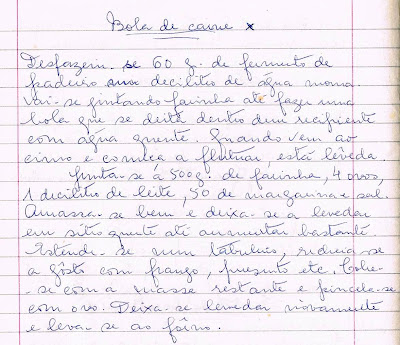 Bola de carne x
Desfazem-se 60 g. de fermento de
padeiro num decilitro de água morna.
Vai-se juntando farinha até fazer uma
bola que se deita dentro dum recipiente
com água quente. Quando vem ao
cimo e começa a flutuar, está lêveda.
Junta-se a 500g. de farinha, 4 ovos,
1 decilitro de leite, 50 de margarina e sal.
Amassa-se bem e deixa-se a levedar
em sítio quente até aumentar bastante.
Estende-se num tabuleiro, recheia-se
a gôsto com frango, presunto etc. Cobre-
se com a masse restante e pincela-se
com ovo. Deixa-se levedar novamente
e leva-se ao fôrno.